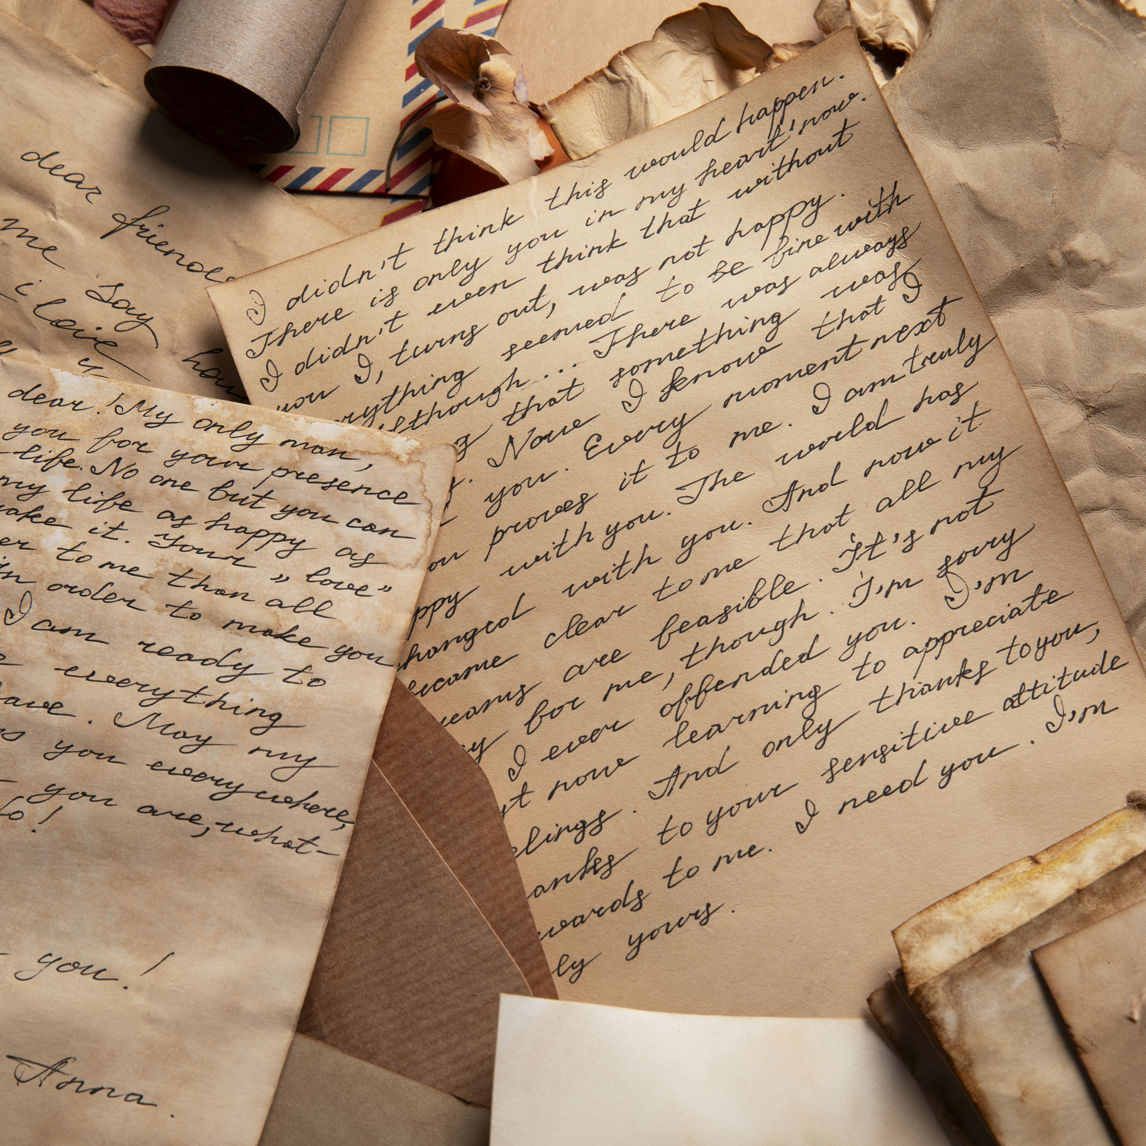 dear friends
me say
i love
y hav
I didn't think this would happen.
There is only you in my heart now.
I didn't even think that without
you I, turns out, was not happy.
rything seemed to be fine with
lthough... There was always
g that something was
. Now I know that I
you. Every moment next
ou proves it to me. I am truly
ppy with you. The world has
hanged with you. And now it
ecome clear to me that all my
reams are feasible. It's not
y for me, though. I'm sorry
I ever offended you. I'm
st now learning to appreciate
elings. And only thanks to you,
anks to your sensitive attitude
wards to me. I need you. I'm
ly yours.
dear! My only man,
you for your presence
life. No one but you can
my life as happy as
ake it. Your "love"
er to me than all
in order to make you
I am ready to
e everything
ave. May my
s you everywhere,
you are, what-
do!
you!
Anna.